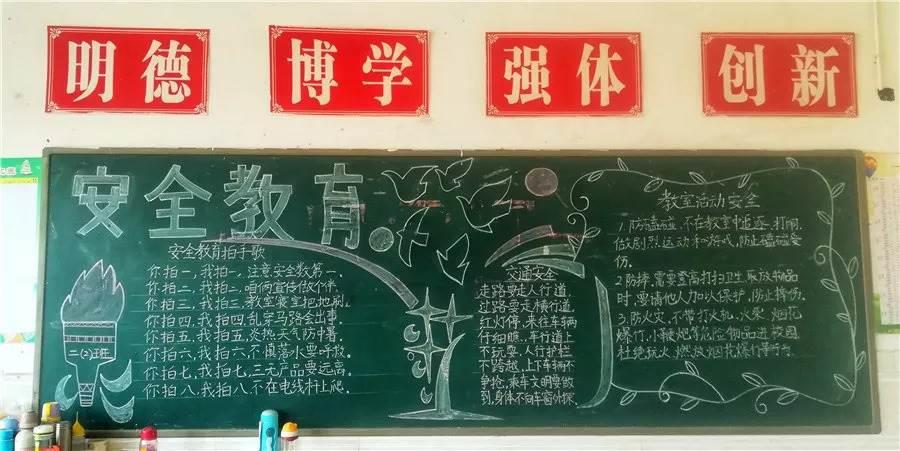 明德
博学
强体
创新
安全教育
安全教育拍手歌
你拍一，我拍一，注意安全数第一。
你拍二，我拍二，咱俩宣传做个伴。
你拍三，我拍三，教室寝室把地刷。
你拍四，我拍四，乱穿马路会出事。
你拍五，我拍五，炎热天气防中暑。
你拍六，我拍六，不慎落水要呼救。
你拍七，我拍七，三无产品要远离。
你拍八，我拍八，不在电线杆上爬。
二(2)班
交通安全
走路要走人行道，
过路要走横行道，
红灯停，来往车辆
仔细瞧，车行道上
不玩耍，人行护栏
不跨越，上下车辆不
争抢，乘车文明要做
到，身体不向车窗外探。
教室活动安全
1.防磕碰，不在教室中追逐、打闹，
做剧烈运动和游戏，防止磕碰受
伤。
2.防摔，需要登高打扫卫生、取放物品
时，要请他人加以保护，防止摔伤。
3.防火灾，不带打火机、火柴、烟花
爆竹、小鞭炮等危险物品进校园，
杜绝玩火、燃放烟花爆竹等行为。